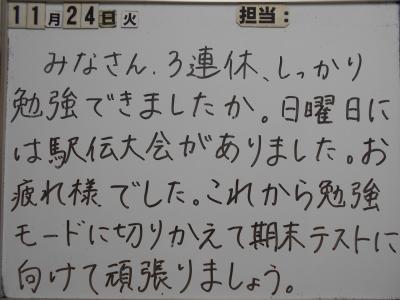 11月24日火 担当:
みなさん、3連休、しっかり
勉強できましたか。日曜日に
は駅伝大会がありました。お
疲れ様でした。これから勉強
モードに切りかえて期末テストに
向けて頑張りましょう。